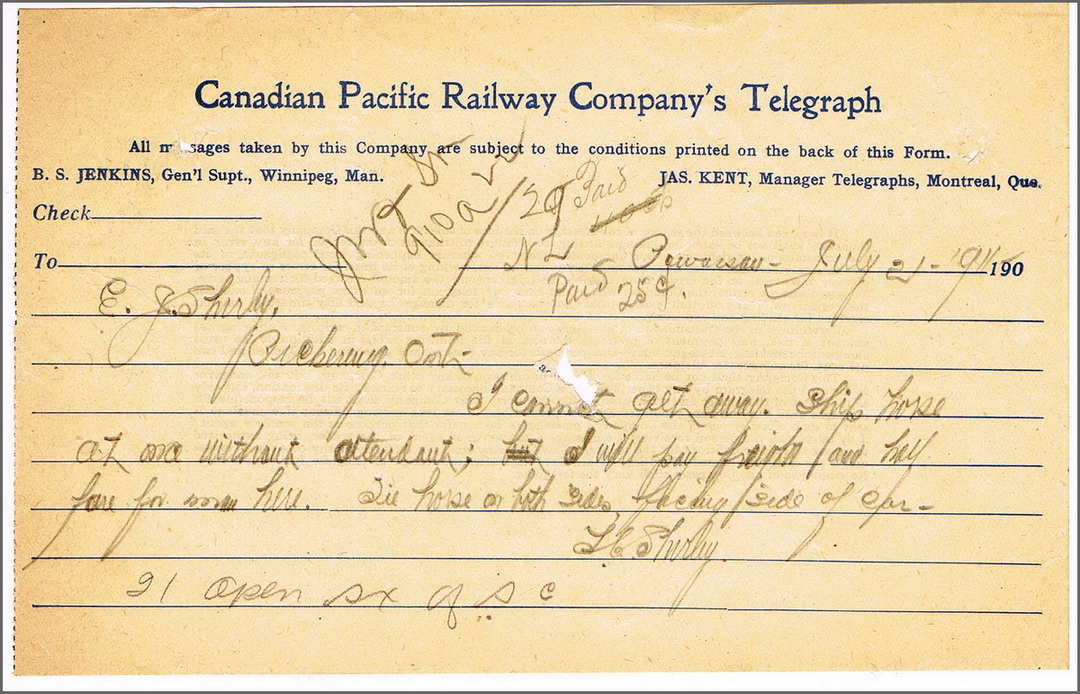 Canadian Pacific Railway Company's Telegraph
All m sages taken by this Company are subject to the conditions printed on the back of this Form.
B. S. JENKINS, Gen'l Supt., Winnipeg, Man.
JAS. KENT, Manager Telegraphs, Montreal, Que.
Check
910a
29 Paid
To
NL Powassan - July 21 - 190
Paid 25¢.
E. J. Shirly,
Pickering, Ont-
I cannot get away. Ship horse
at once without attendant; but I will pay freight and half
fare for man here. Tie horse on both sides, facing side of car-
Shirly.
91 open sx of s c